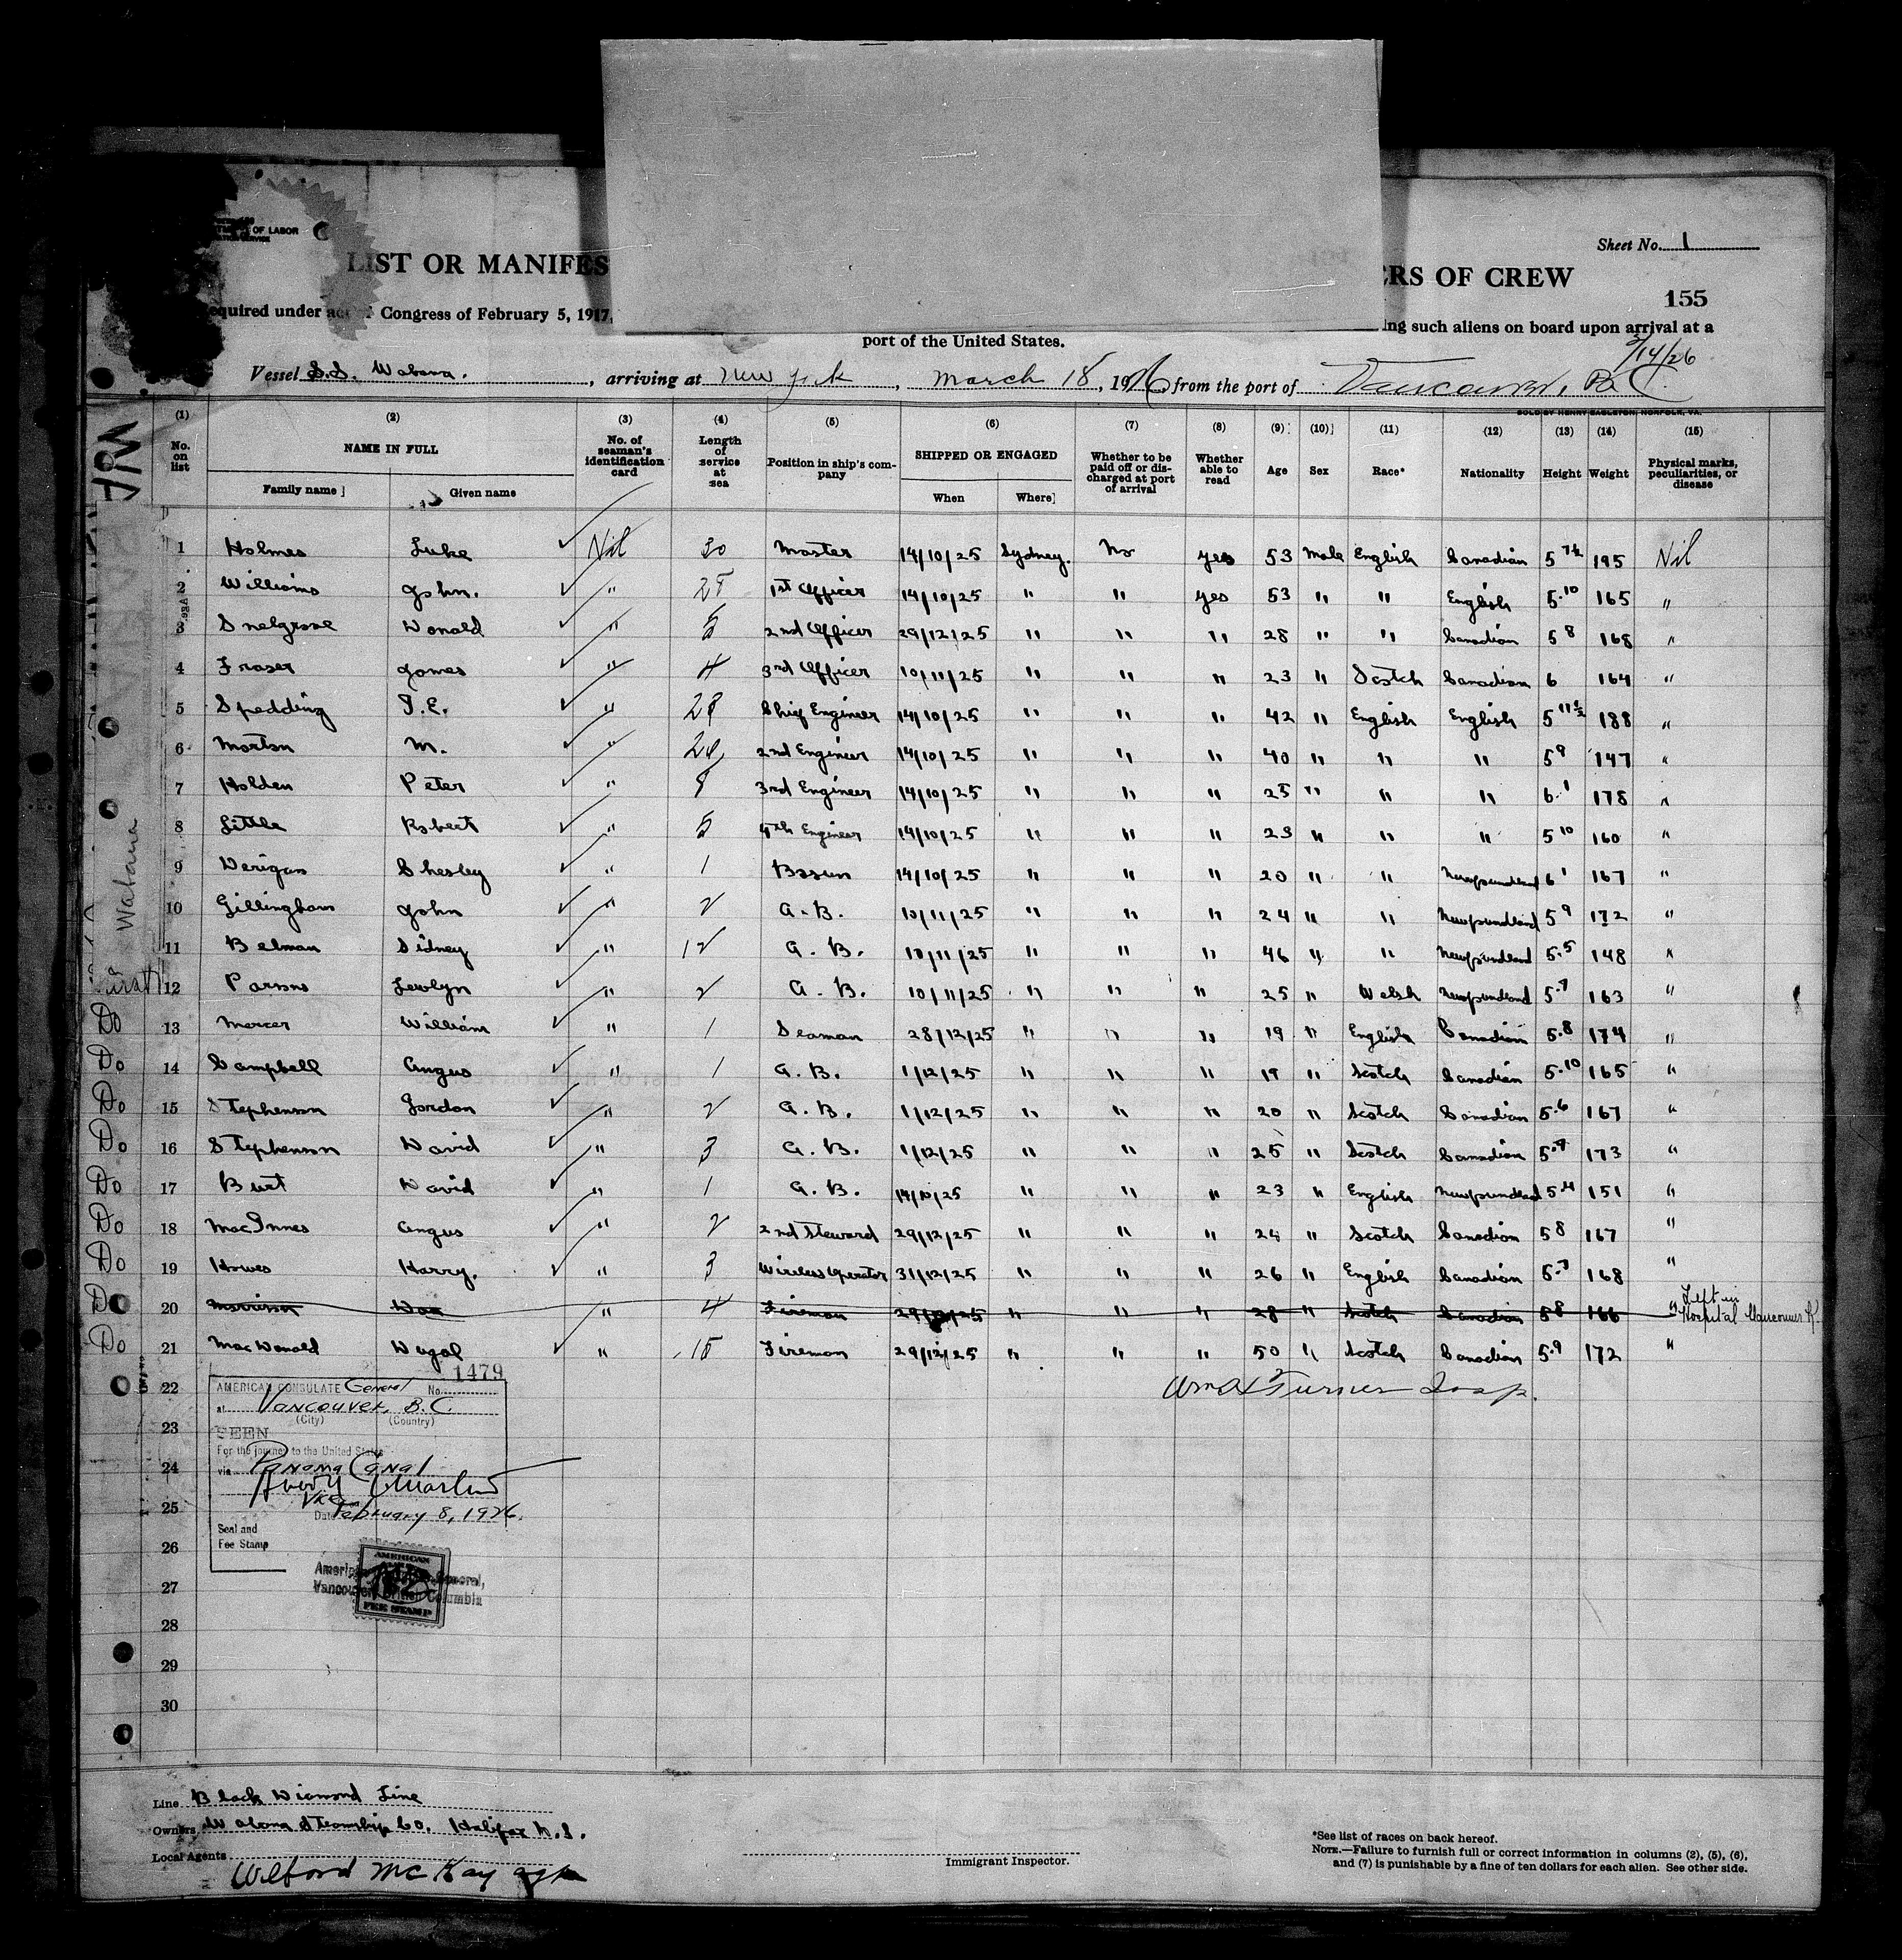 OF LABOR
Sheet No. 1
LIST OR MANIFES
ERS OF CREW
155
equired under act Congress of February 5, 1917,
ing such aliens on board upon arrival at a
port of the United States.
3/14/26
Vessel S.S. Wabana. , arriving at New York , March 18, 1926 from the port of Vancouver, B.C.
SOLD BY HENRY EAGLETON, NORFOLK, VA.
(1) (2) (3) (4) (5) (6) (7) (8) (9) (10) (11) (12) (13) (14) (15)
No. on list NAME IN FULL No. of seaman's identification card Length of service at sea Position in ship's company SHIPPED OR ENGAGED Whether to be paid off or discharged at port of arrival Whether able to read Age Sex Race* Nationality Height Weight Physical marks, peculiarities, or disease
Family name Given name When Where
1 Holmes Luke Nil 30 Master 14/10/25 Sydney. No Yes 53 Male English Canadian 5 7½ 195 Nil
2 Williams John. " 28 1st Officer 14/10/25 " " Yes 53 " " English 5.10 165 "
3 Snelgrove Donald " 5 2nd Officer 29/12/25 " " " 28 " " Canadian 5 8 168 "
4 Fraser James " 4 3rd Officer 10/11/25 " " " 23 " Scotch Canadian 6 164 "
5 Spedding T.E. " 28 Chief Engineer 14/10/25 " " " 42 " English English 5 11½ 188 "
6 Morton M. " 20 2nd Engineer 14/10/25 " " " 40 " " " 5 9 147 "
7 Holden Peter " 8 3rd Engineer 14/10/25 " " " 25 " " " 6.1 178 "
8 Little Robert " 5 4th Engineer 14/10/25 " " " 23 " " " 5 10 160 "
9 Derigan Chesley " 1 Bosun 14/10/25 " " " 20 " " Newfoundland 6 1 167 "
10 Gillingham John " 2 A.B. 10/11/25 " " " 24 " " Newfoundland 5 9 172 "
11 Belman Sidney " 12 A.B. 10/11/25 " " " 46 " " Newfoundland 5.5 148 "
12 Parsons Lewlyn " 2 A.B. 10/11/25 " " " 25 " Welsh Newfoundland 5.7 163 "
Do 13 Mercer William " 1 Seaman 28/12/25 " " " 19 " English Canadian 5.8 174 "
Do 14 Campbell Angus " 1 A.B. 1/12/25 " " " 19 " Scotch Canadian 5.10 165 "
Do 15 Stephenson Gordon " 2 A.B. 1/12/25 " " " 20 " Scotch Canadian 5.6 167 "
Do 16 Stephenson David " 3 A.B. 1/12/25 " " " 25 " Scotch Canadian 5.9 173 "
Do 17 Burt David " 1 A.B. 14/10/25 " " " 23 " English Newfoundland 5.4 151 "
Do 18 MacInnes Angus " 2 2nd Steward 29/12/25 " " " 24 " Scotch Canadian 5 8 167 "
Do 19 Howes Harry. " 3 Wireless Operator 31/12/25 " " " 26 " English Canadian 5.3 168 "
Do 20 Morrison Dan " 4 Fireman 29/12/25 " " " 28 " Scotch Canadian 5 8 166 " Left in Hospital Vancouver
Do 21 MacDonald Dugal " 15 Fireman 29/12/25 " " " 50 " Scotch Canadian 5.9 172 "
Wabana
1479
22
AMERICAN CONSULATE General No.
Wm Turner Insp.
at Vancouver, B.C.
(City) (Country)
23
SEEN
For the journey to the United States
24
via Panama Canal
Vice
25
Date February 8, 1926.
Seal and
Fee Stamp
26
AMERICAN
American Consulate General,
27
Vancouver, British Columbia
FEE STAMP
28
29
30
Line Black Diamond Line
Owners Wabana Steamship Co. Halifax N.S.
Local Agents Wilford McKay agt
Immigrant Inspector.
*See list of races on back hereof.
NOTE.—Failure to furnish full or correct information in columns (2), (5), (6),
and (7) is punishable by a fine of ten dollars for each alien. See other side.